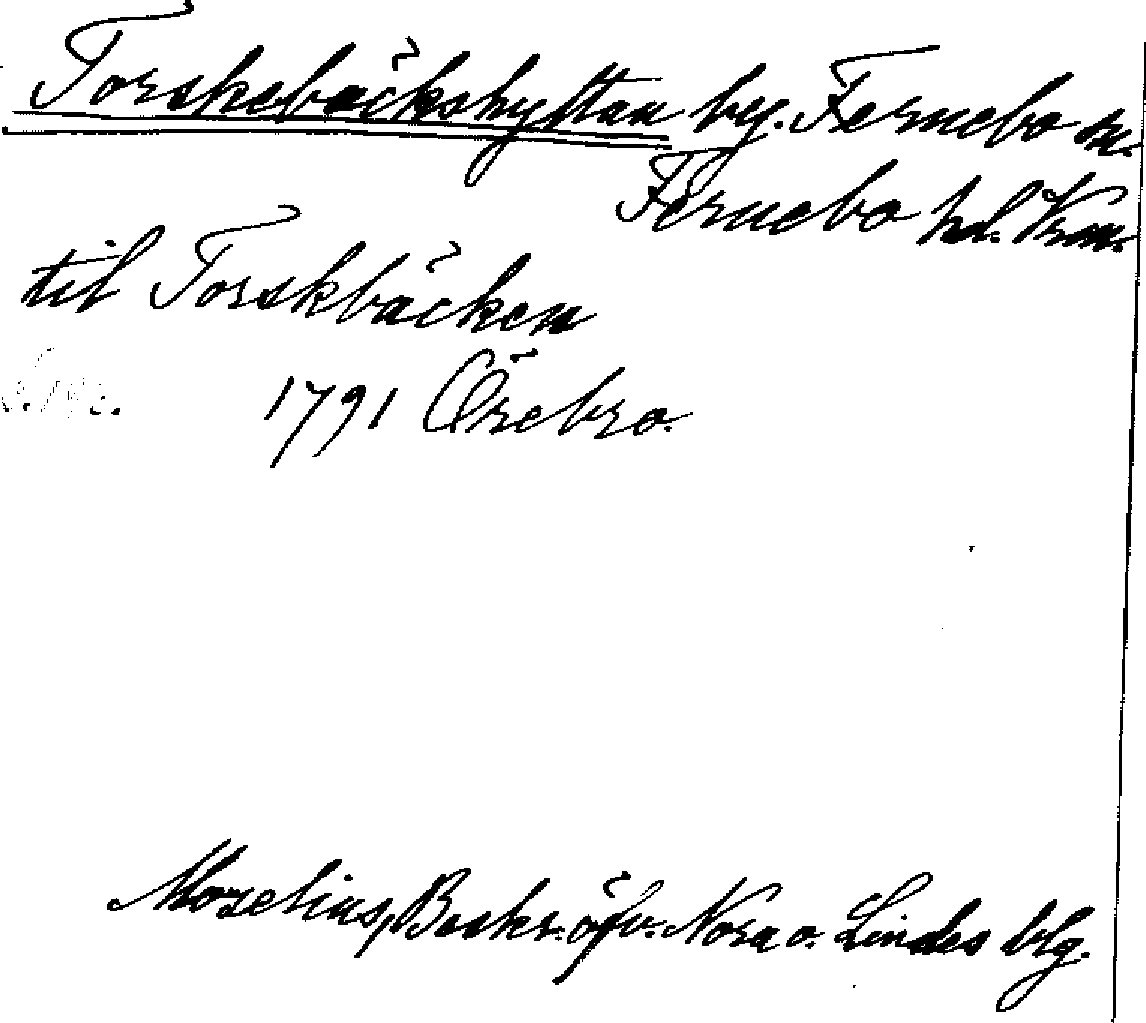 Torskebäckshyttan by. Fernebo sn.
Fernebo hd. Vrm.
til Torskbäcken
1791 Örebro.
Morelius, Beskr. öfv. Nora o. Lindes blg.